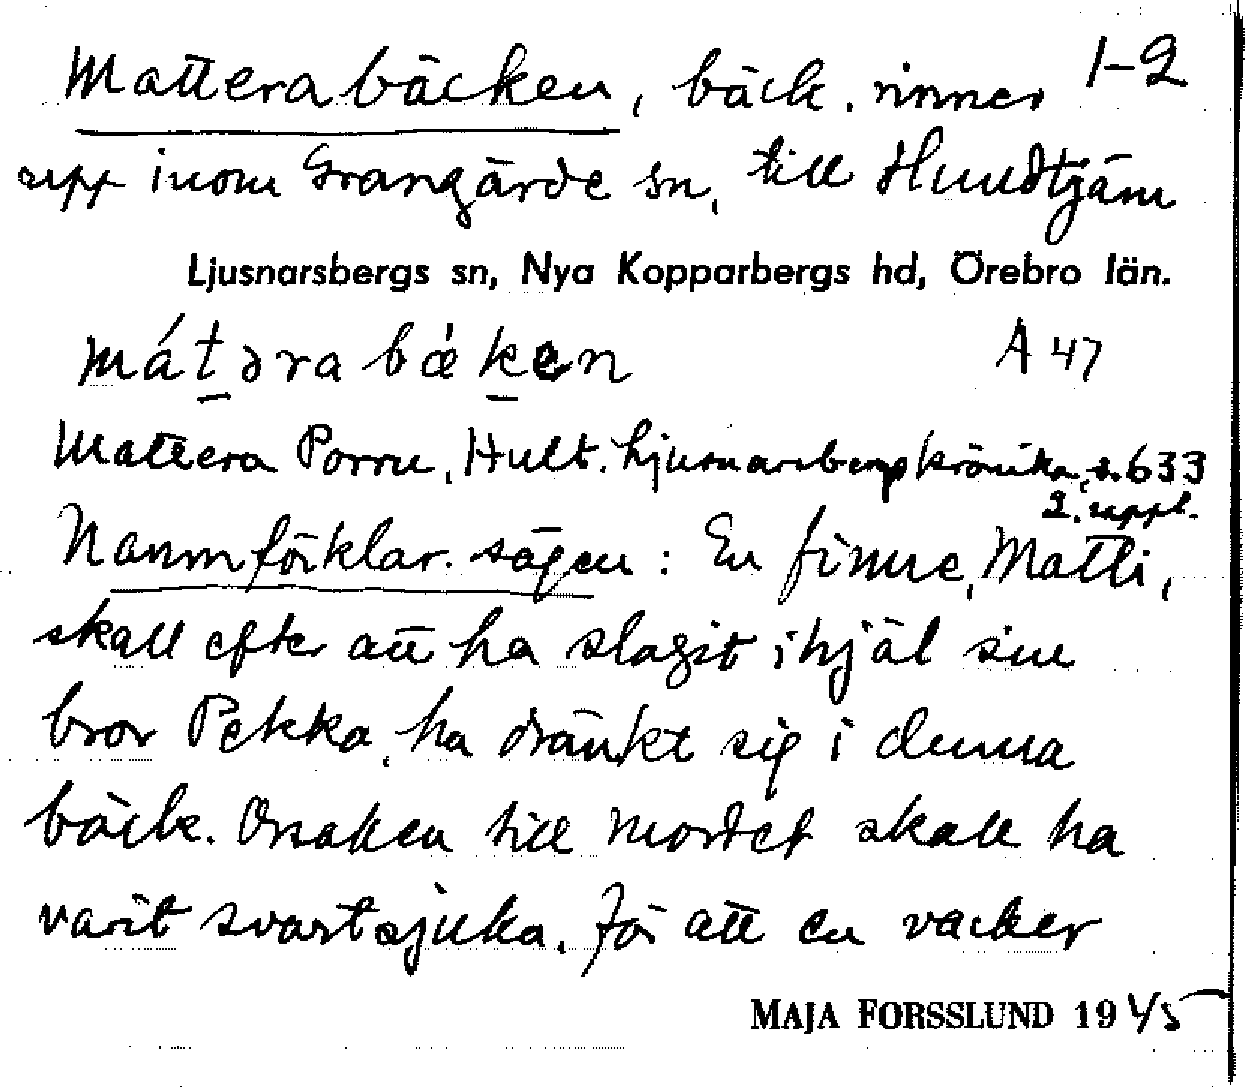 Matterabäcken, bäck. rinner 1-2
upp inom Grangärde sn, till Hundtjärn
Ljusnarsbergs sn, Nya Kopparbergs hd, Örebro län.
mát̠əra bæ̀k̠en A 47
Mattera Porru, Hult. Ljusnarsbergskrönika, s. 633
2. uppl.
Namnförklar. sägen: En finne, Matti,
skall efter att ha slagit ihjäl sin
bror Pekka, ha dränkt sig i denna
bäck. Orsaken till mordet skall ha
varit svartsjuka. För att en vacker
MAJA FORSSLUND 1945